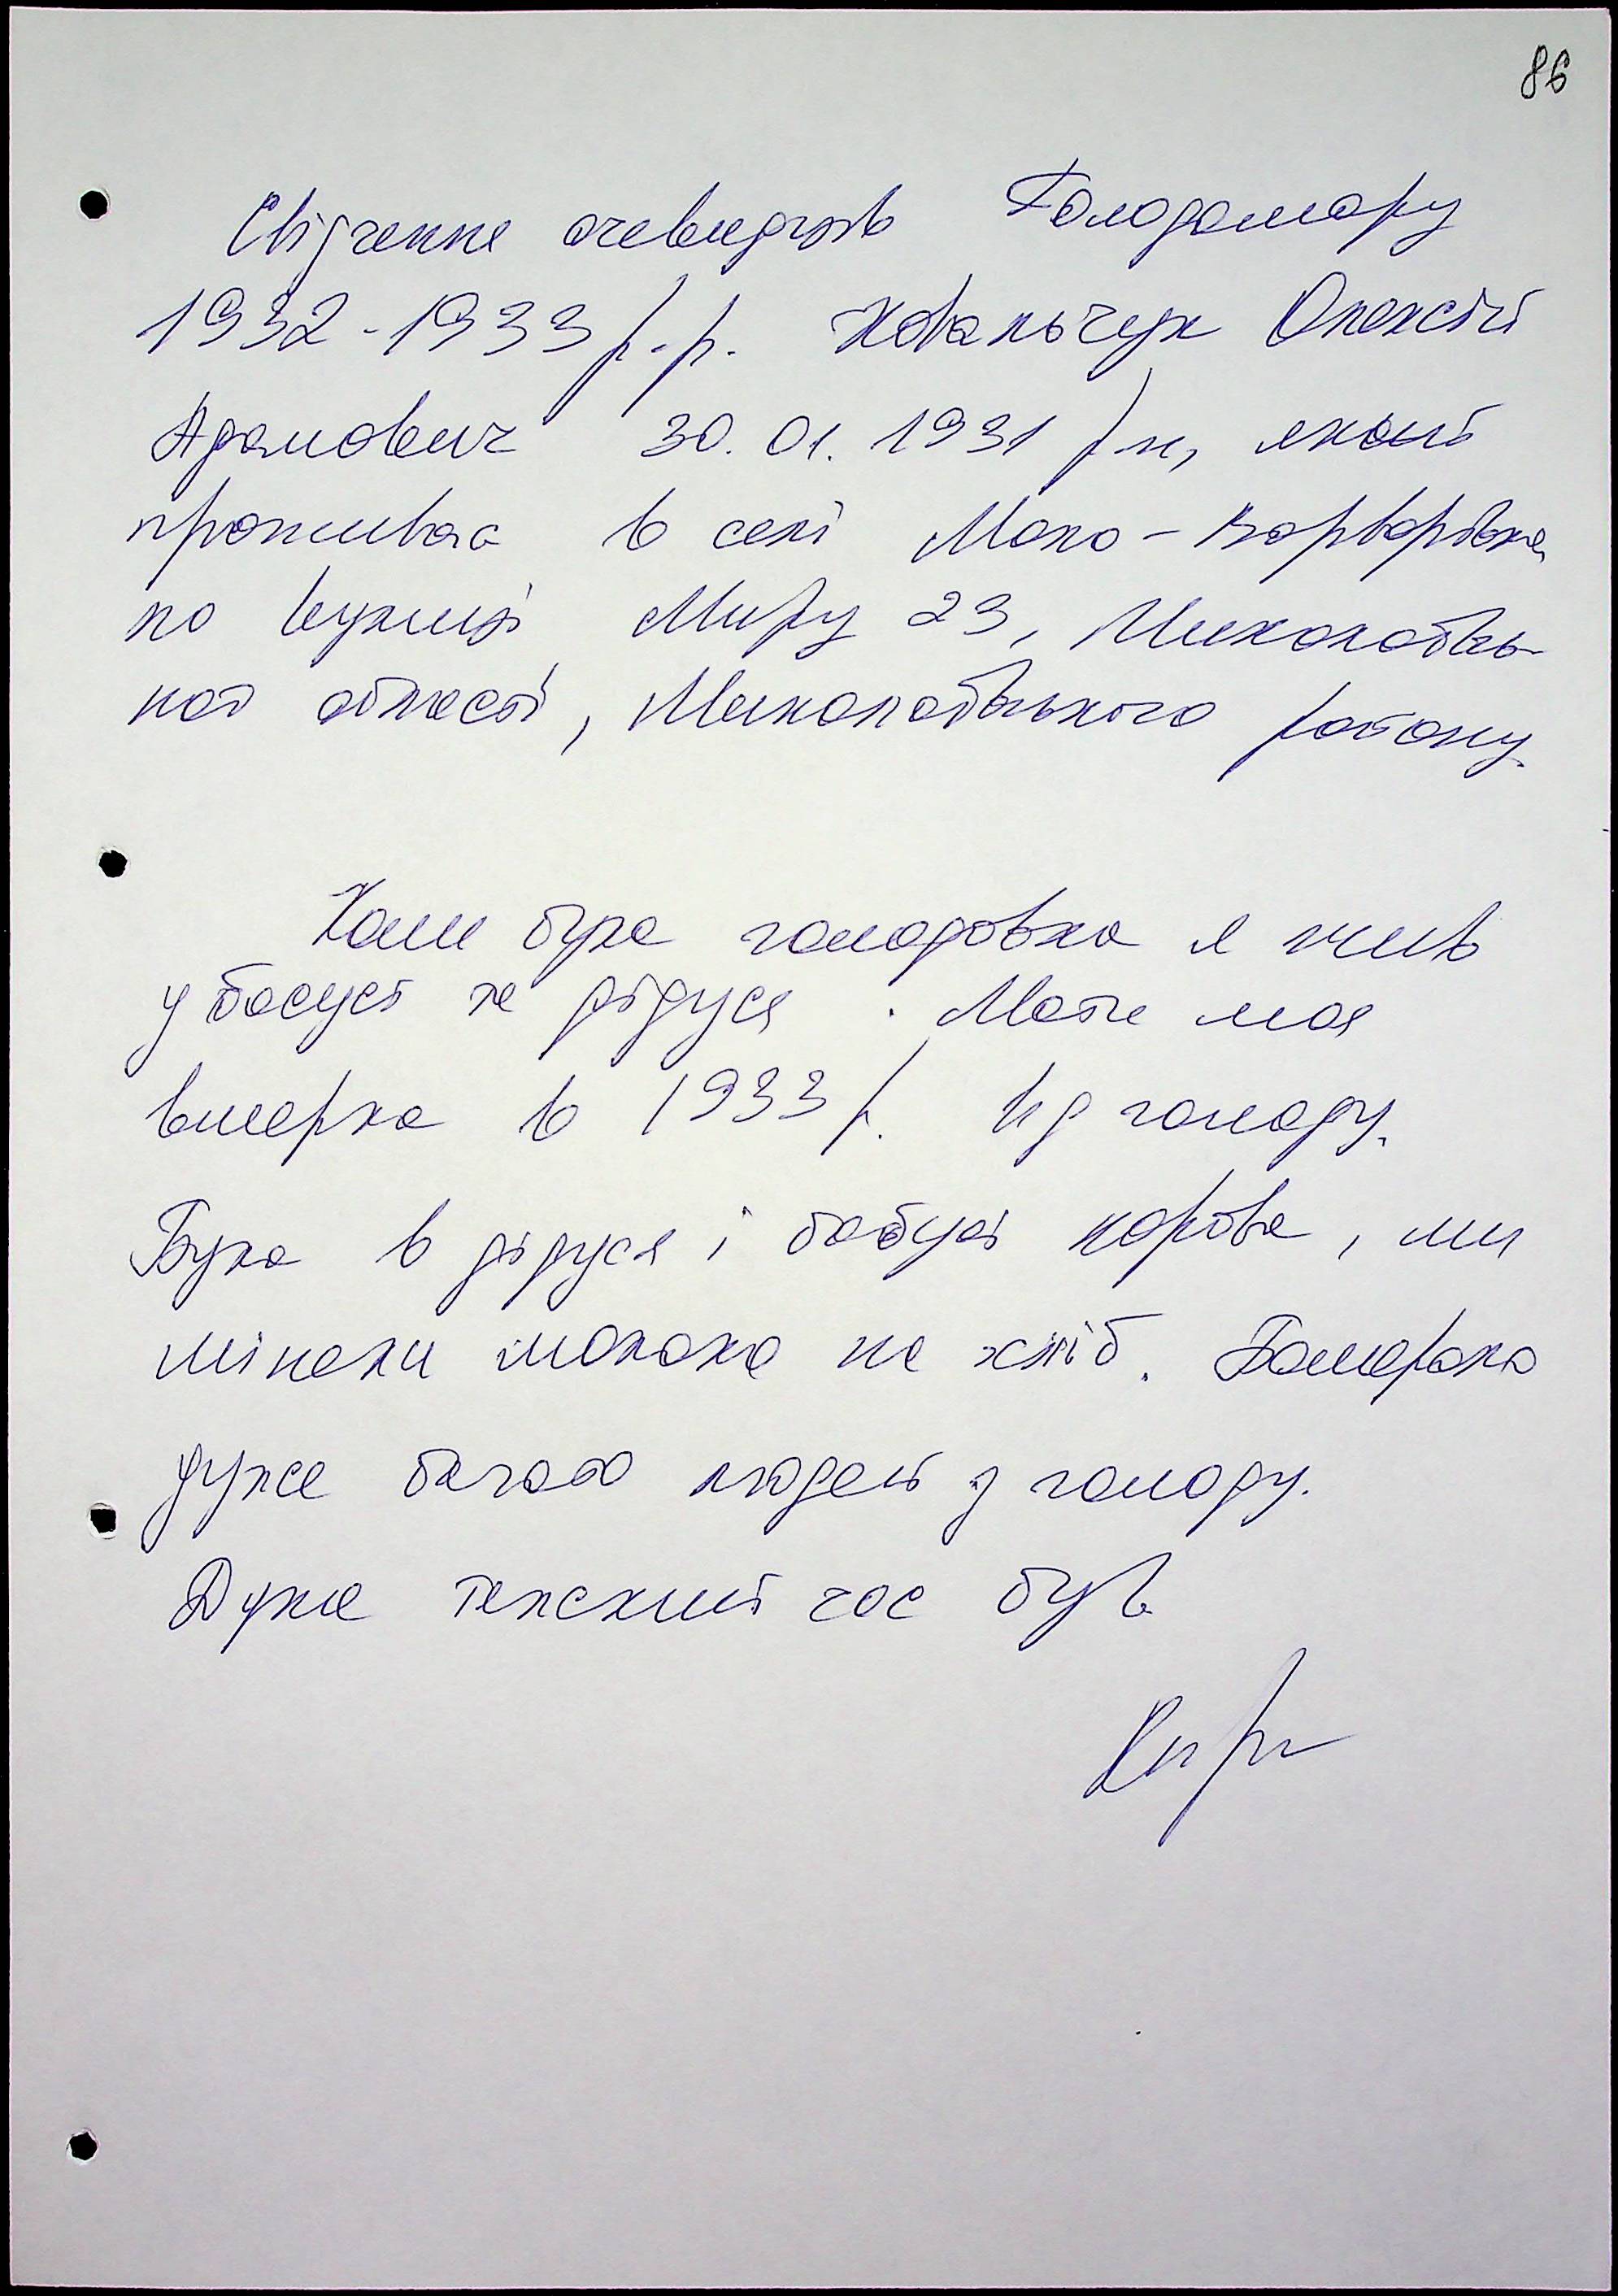 86
Свідчення очевидців Голодомору
1932-1933 р.р. Ковальчук Олексій
Адамович 30.01.1931 р.н, який
проживає в селі Мало-Варварівка
по вулиці Миру 23, Миколаївсь-
кої області, Миколаївського району.
Коли була голодовка я жив
у бабусі та дідуся. Мати моя
вмерла в 1933 р. від голоду.
Була в дідуся і бабусі корова, ми
міняли молоко на хліб. Вмерало
дуже багато людей з голоду.
Дуже тяжкий час був